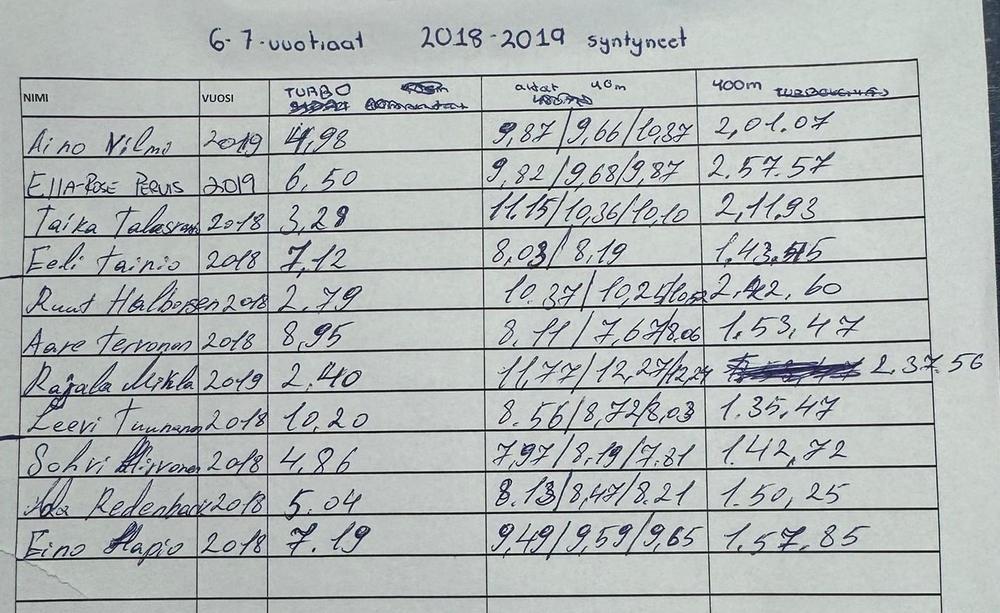 6-7-vuotiaat 2018-2019 syntyneet
NIMI VUOSI TURBO aidat 40m 400m
Aino Nilmo 2019 4,98 9,87/9,66/10,87 2,01.07
Ella-Rose Pervis 2019 6,50 9,82/9,68/9,87 2,57.57
Taika 2018 3,28 11.15/10,36/10,10 2,11.93
Eeli Tainio 2018 7,12 8,03/8,19 1,43.
Ruut 2018 2,79 10.37/10,25/ 60
Aare Tervonen 2018 8,95 8,11/7,67/8.06 1.53,47
Rajala Mikla 2019 2,40 11,77/12,27/ 2.37.56
Leevi 2018 10,20 8.56/8,72/8,03 1.35,47
Sohvi Hirvonen 2018 4,86 7,97/8,19/7.81 1.42,72
2018 5,04 8.13/8,47/8.21 1.50,25
Eino Hapio 2018 7.19 9,49/9,59/9,65 1.57.85